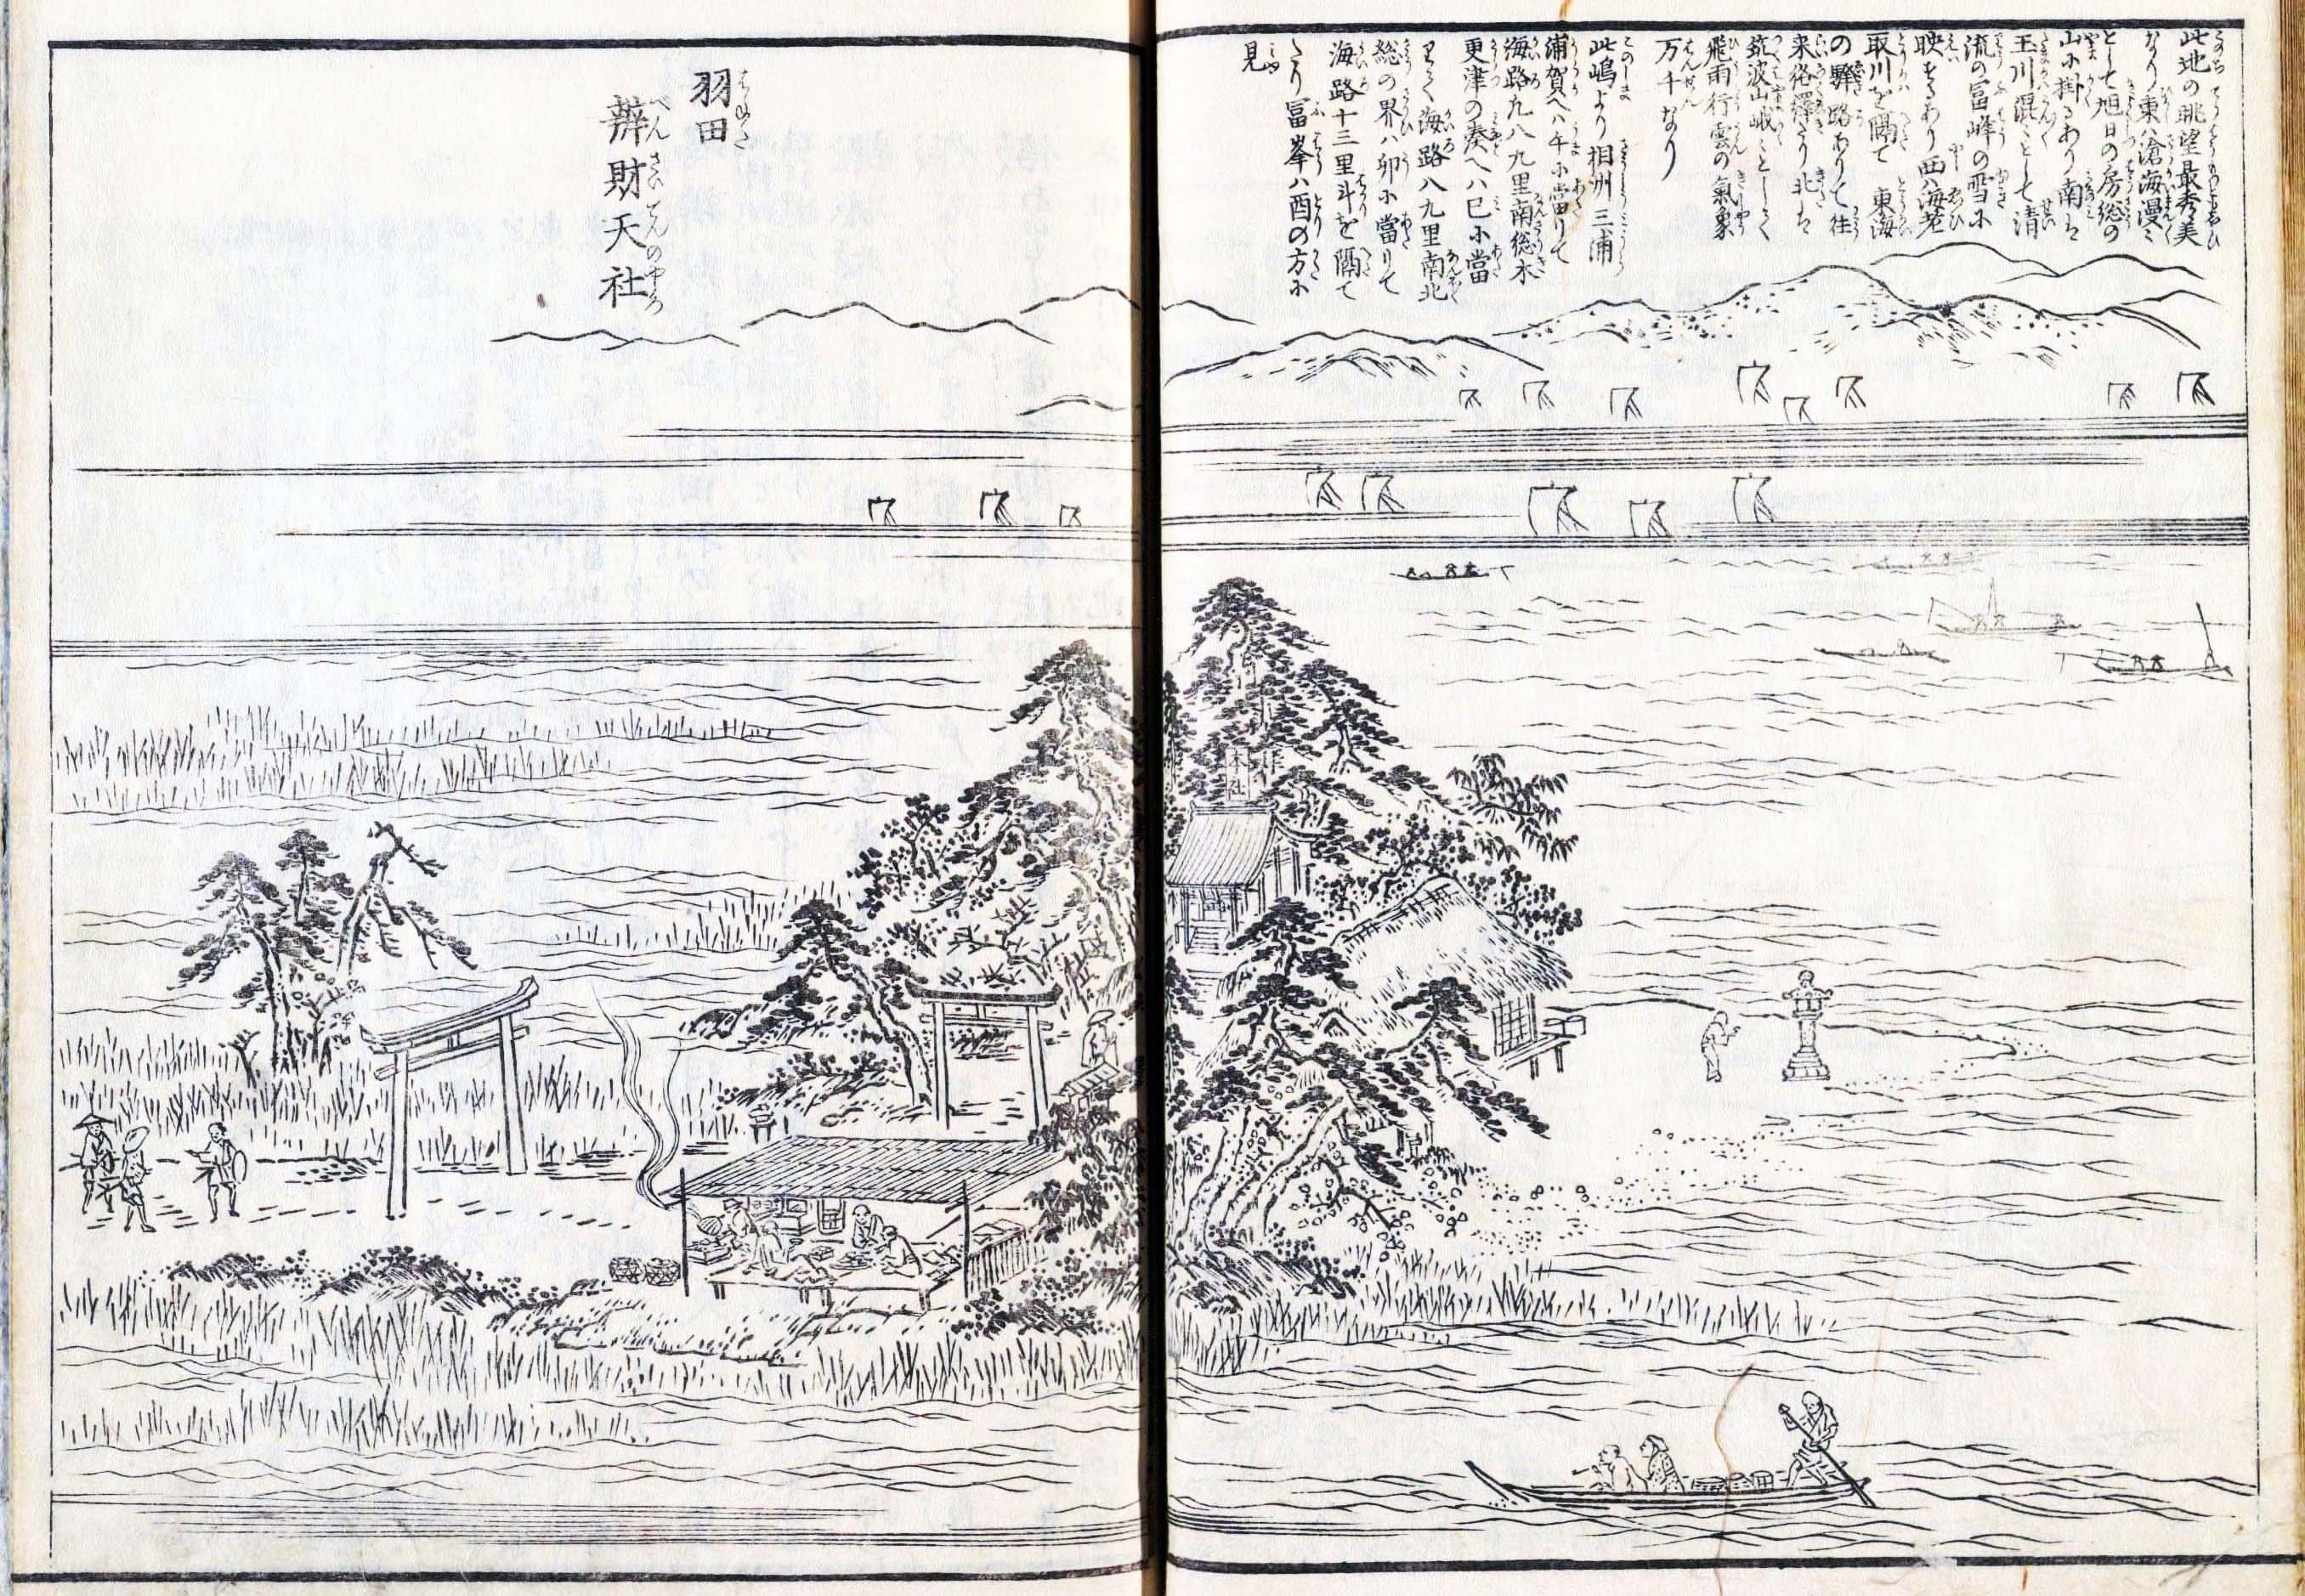 此地の眺望最秀美
なり東ハ滄海漫〻
として旭日の房総の
山に掛るあり南ハ
玉川混〻として清
流の冨峰の雪に
映するあり西ハ海老
取川を隔て 東海
の驛路ありて往
来絡繹たり北ハ
筑波山峨〻として
飛雨行雲の氣象
万千なり
此嶋より相州三浦
浦賀へハ午に當りて
海路九八九里南総木
更津の湊へハ巳に當
りて海路八九里南北
総の界ハ卯に當りて
海路十三里斗を隔て
たり冨峯ハ酉の方に
見ゆ
本社
羽田
辨財天社
べんざいてんのやしろ